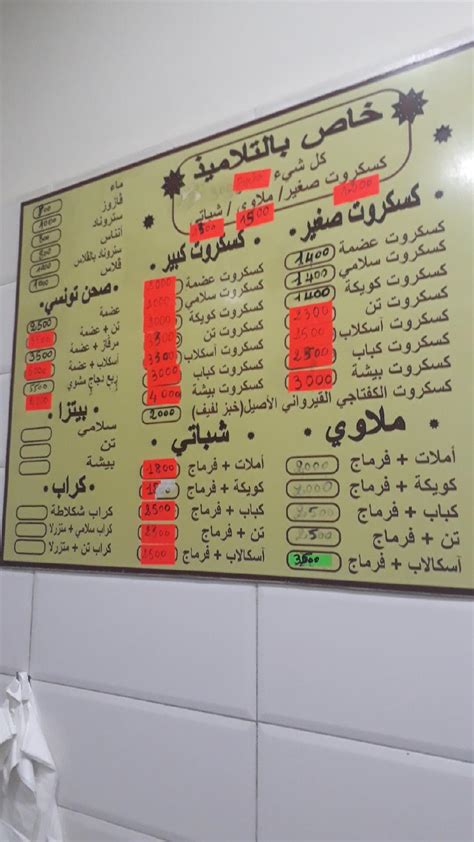 خاص بالتلاميذ
كل شيء
كسكروت صغير / ملاوي / شباتي
1500
كسكروت صغير
كسكروت عضمة 1400
كسكروت سلامي 1400
كسكروت كويكة 1400
كسكروت تن 2300
كسكروت أسكلاب 2500
كسكروت كباب 2500
كسكروت بيشة 3000
كسكروت الكفتاجي القيرواني الأصيل (خبز لفيف) 2000
كسكروت كبير
كسكروت عضمة
كسكروت سلامي
كسكروت كويكة
كسكروت تن
كسكروت أسكلاب
كسكروت كباب 3000
كسكروت بيشة 4000
ماء
قازوز 1000
ستروناد
أنناس
ستروناد بالقلاس
قلاس
صحن تونسي
عضمة 2500
تن + عضمة
مرقاز + عضمة 3500
أسكلاب + عضمة
ربع نجاج مشوي
بيتزا
سلامي
تن
بيشة
كراب
كراب شكلاطة
كراب سلامي + متزرلا
كراب تن + متزرلا
شباتي
أملات + فرماج 1800
كويكة + فرماج
كباب + فرماج 2500
تن + فرماج 2500
أسكالاب + فرماج 2500
ملاوي
أملات + فرماج 2000
كويكة + فرماج 2000
كباب + فرماج 2500
تن + فرماج 2500
أسكالاب + فرماج 3500